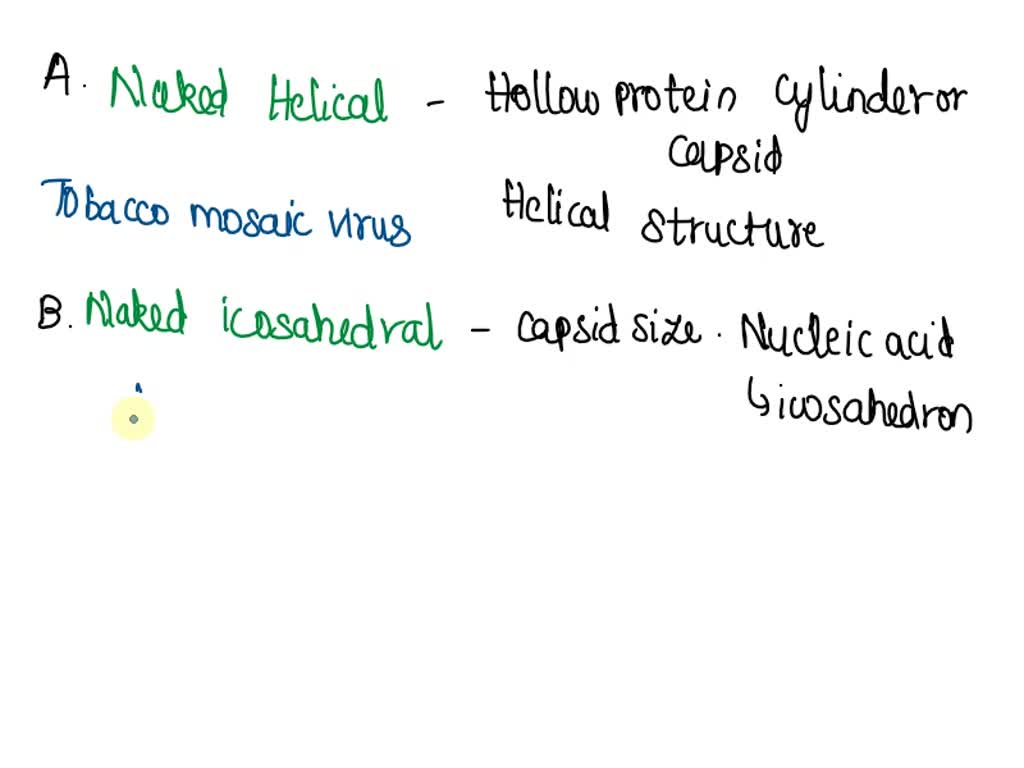 A. Naked Helical - Hollow protein cylinder or
capsid
Tobacco mosaic virus Helical structure
B. Naked icosahedral - capsid size. Nucleic acid
↳ icosahedron